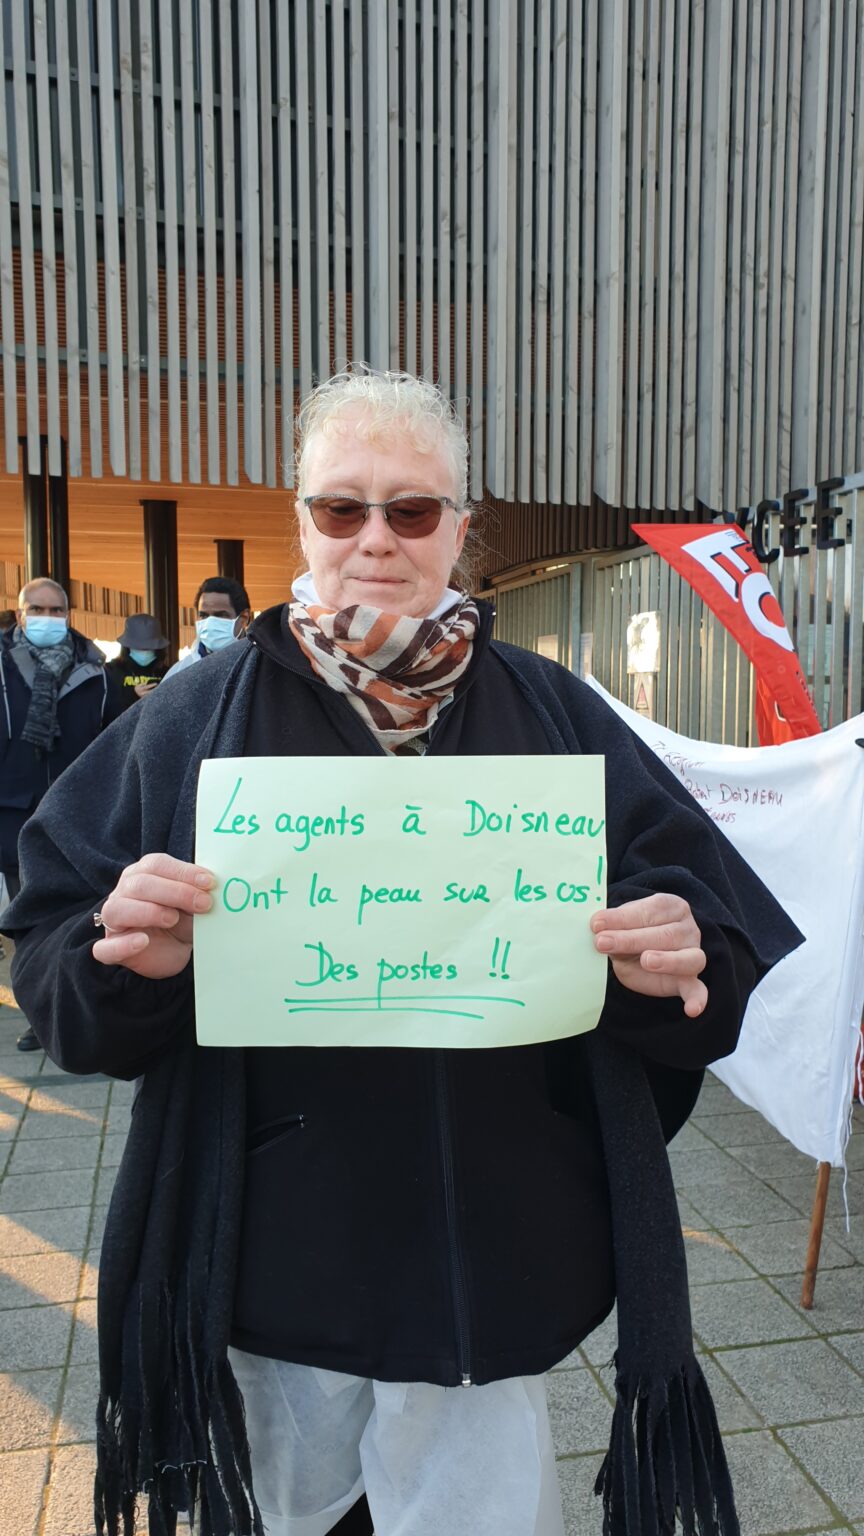 Les agents à Doisneau
Ont la peau sur les os !
Des postes !!
YCEE
ÉO
Doisneau